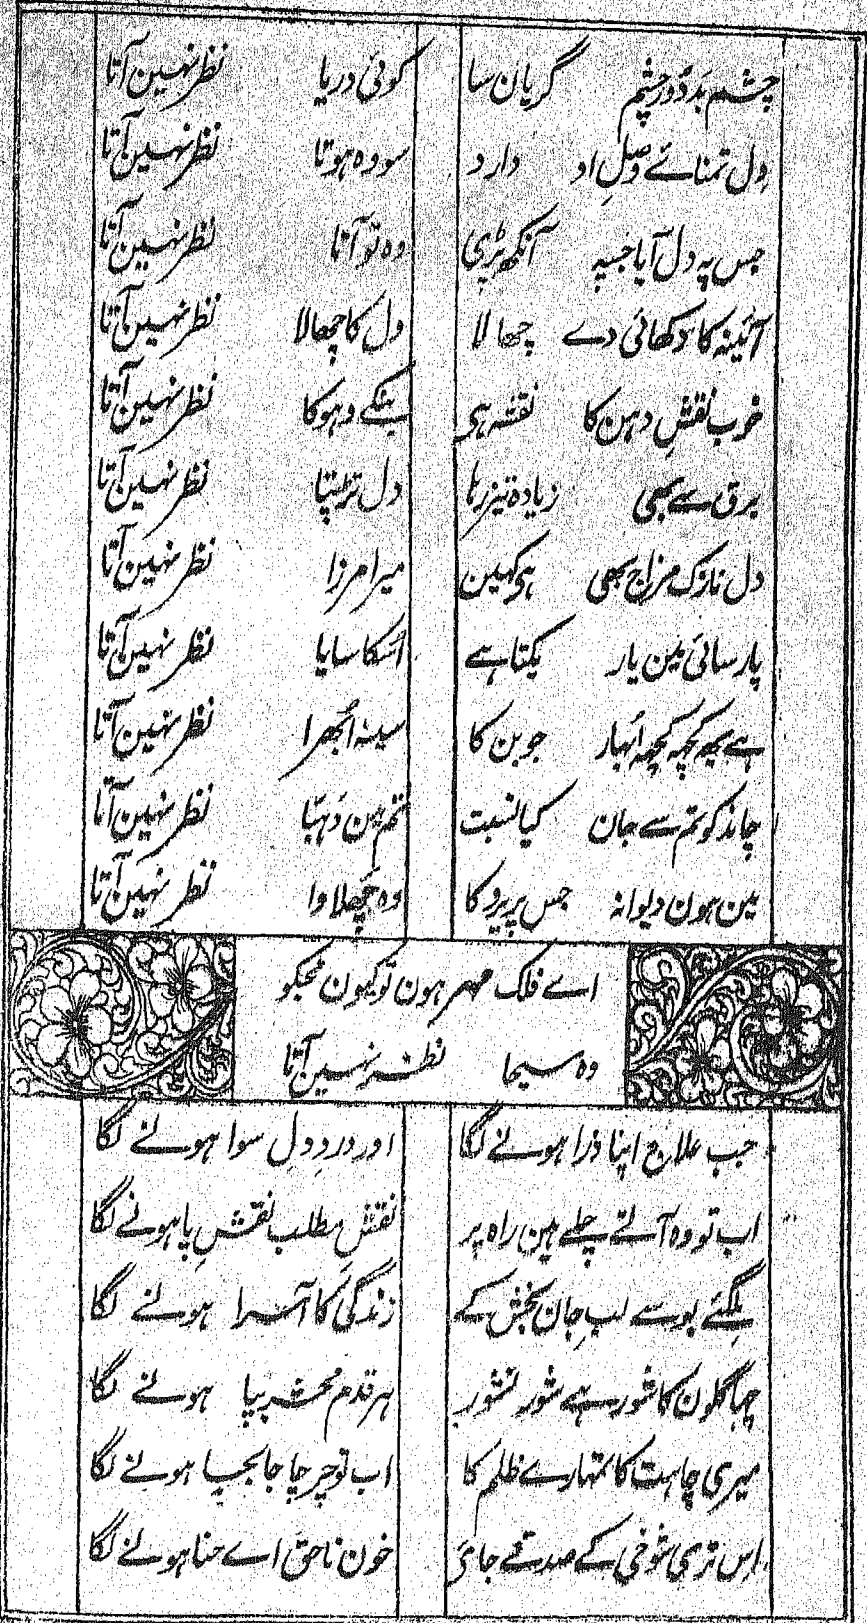 چشم بد دور چشم گریان سا کوئی دریا نظر نہین آتا
دل تمنائے وصلِ او دارد سو وہ ہوتا نظر نہین آتا
جس پہ دل آیا جسپہ آنکھ پڑی وہ تو آتا نظر نہین آتا
آئینہ کا دکھائی دے چھالا دل کا چھالا نظر نہین آتا
خوب نقشِ دہن کا نقشہ ہی بنکے دہوکا نظر نہین آتا
برق سے بھی زیادہ تیز رہا دل تڑپتا نظر نہین آتا
دل نازک مزاج بھی ہی کہین میرا مرزا نظر نہین آتا
پارسائی مین یار یکتا ہے اُسکا سایا نظر نہین آتا
ہے یہ کچہ کچہہ اُبہار جوبن کا سینہ اُبھرا نظر نہین آتا
چاند کو تم سے جان کیا نسبت تم مین دہبّا نظر نہین آتا
مین ہون دیوانہ جس پریرو کا وہ چھلاوا نظر نہین آتا
اے فلک مہر ہون تو کیون مجکو
وہ مسیحا نظر نہین آتا
جب علاج اپنا ذرا ہونے لگا اور دردِ دل سوا ہونے لگا
اب تو وہ آتے چلے ہین راہ پر نقشِ مطلب نقشِ پا ہونے لگا
ملگئے بوسے لبِ جان بخش کے زندگی کا آسرا ہونے لگا
چہاگلون کا شور ہے شور نشور ہر قدم محشر بپا ہونے لگا
میری چاہت کا تمہارے ظلم کا اب تو چرچا جابجا ہونے لگا
اِس تری شوخی کے صدقے جائی خون ناحق اے حنا ہونے لگا